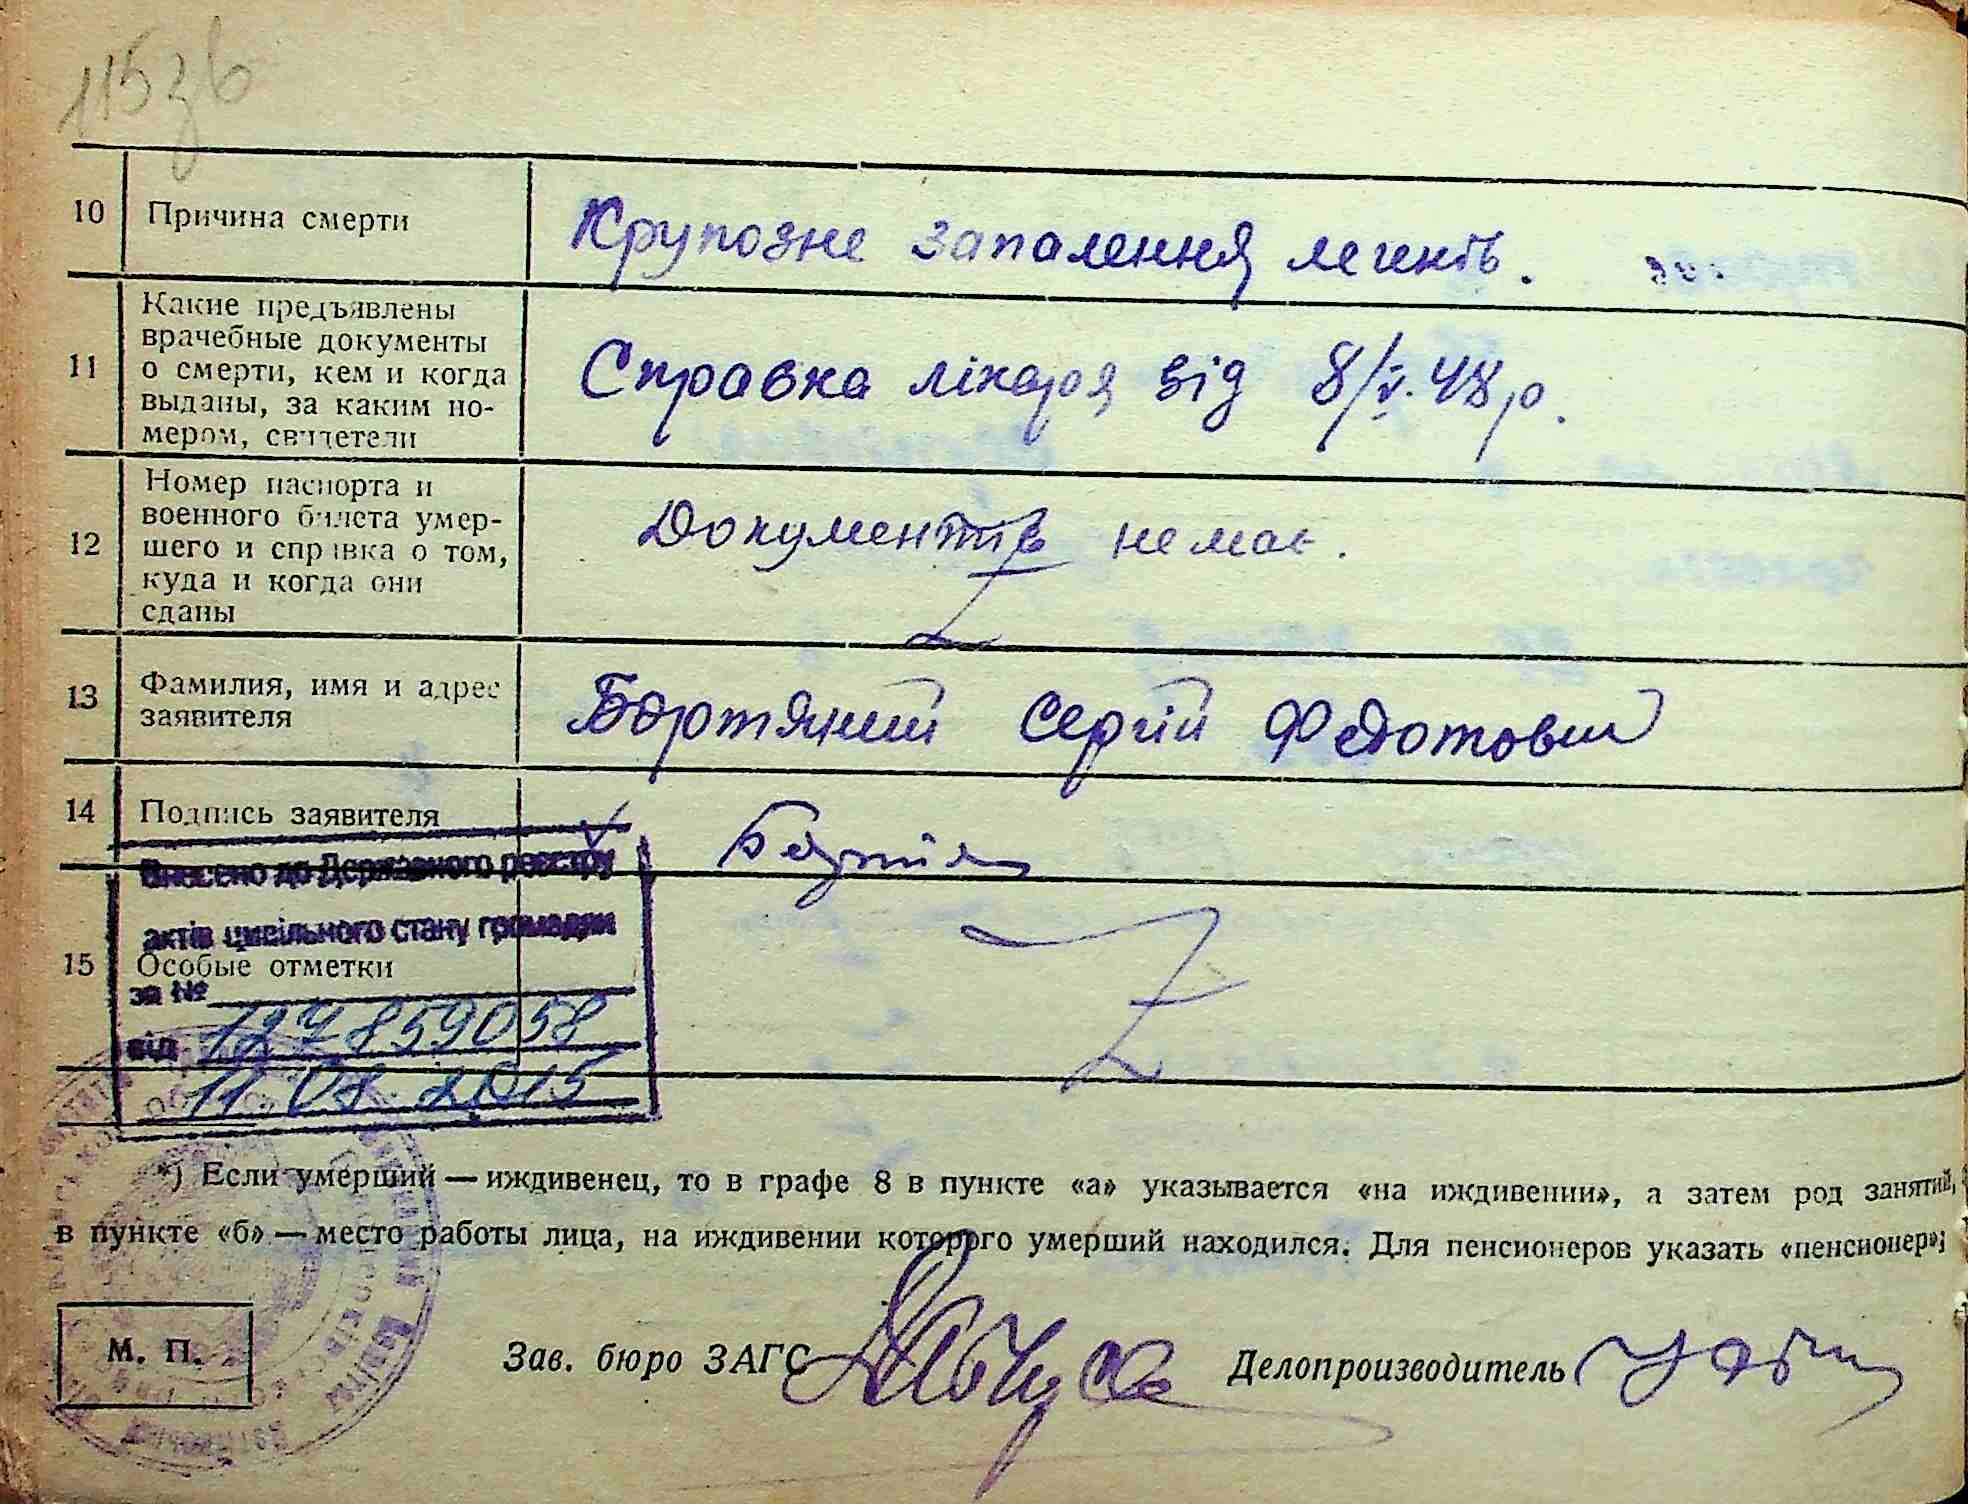 115зв
10 Причина смерти Крупозне запалення легенів.
11 Какие предъявлены
врачебные документы
о смерти, кем и когда
выданы, за каким но-
мером, свидетели
Справка лікаря від 8/V.48р.
12 Номер паспорта и
военного билета умер-
шего и справка о том,
куда и когда они
сданы
Документів немає.
13 Фамилия, имя и адрес
заявителя
Бортяний Сергій Федотови
14 Подпись заявителя
Внесено до Державного реєстру
актів цивільного стану громадян
15 Особые отметки
за №
від 127859058
11.08.2015
*) Если умерший — иждивенец, то в графе 8 в пункте «а» указывается «на иждивении», а затем род занятий,
в пункте «б» — место работы лица, на иждивении которого умерший находился. Для пенсионеров указать «пенсионер»;
М. П. Зав. бюро ЗАГС Делопроизводитель